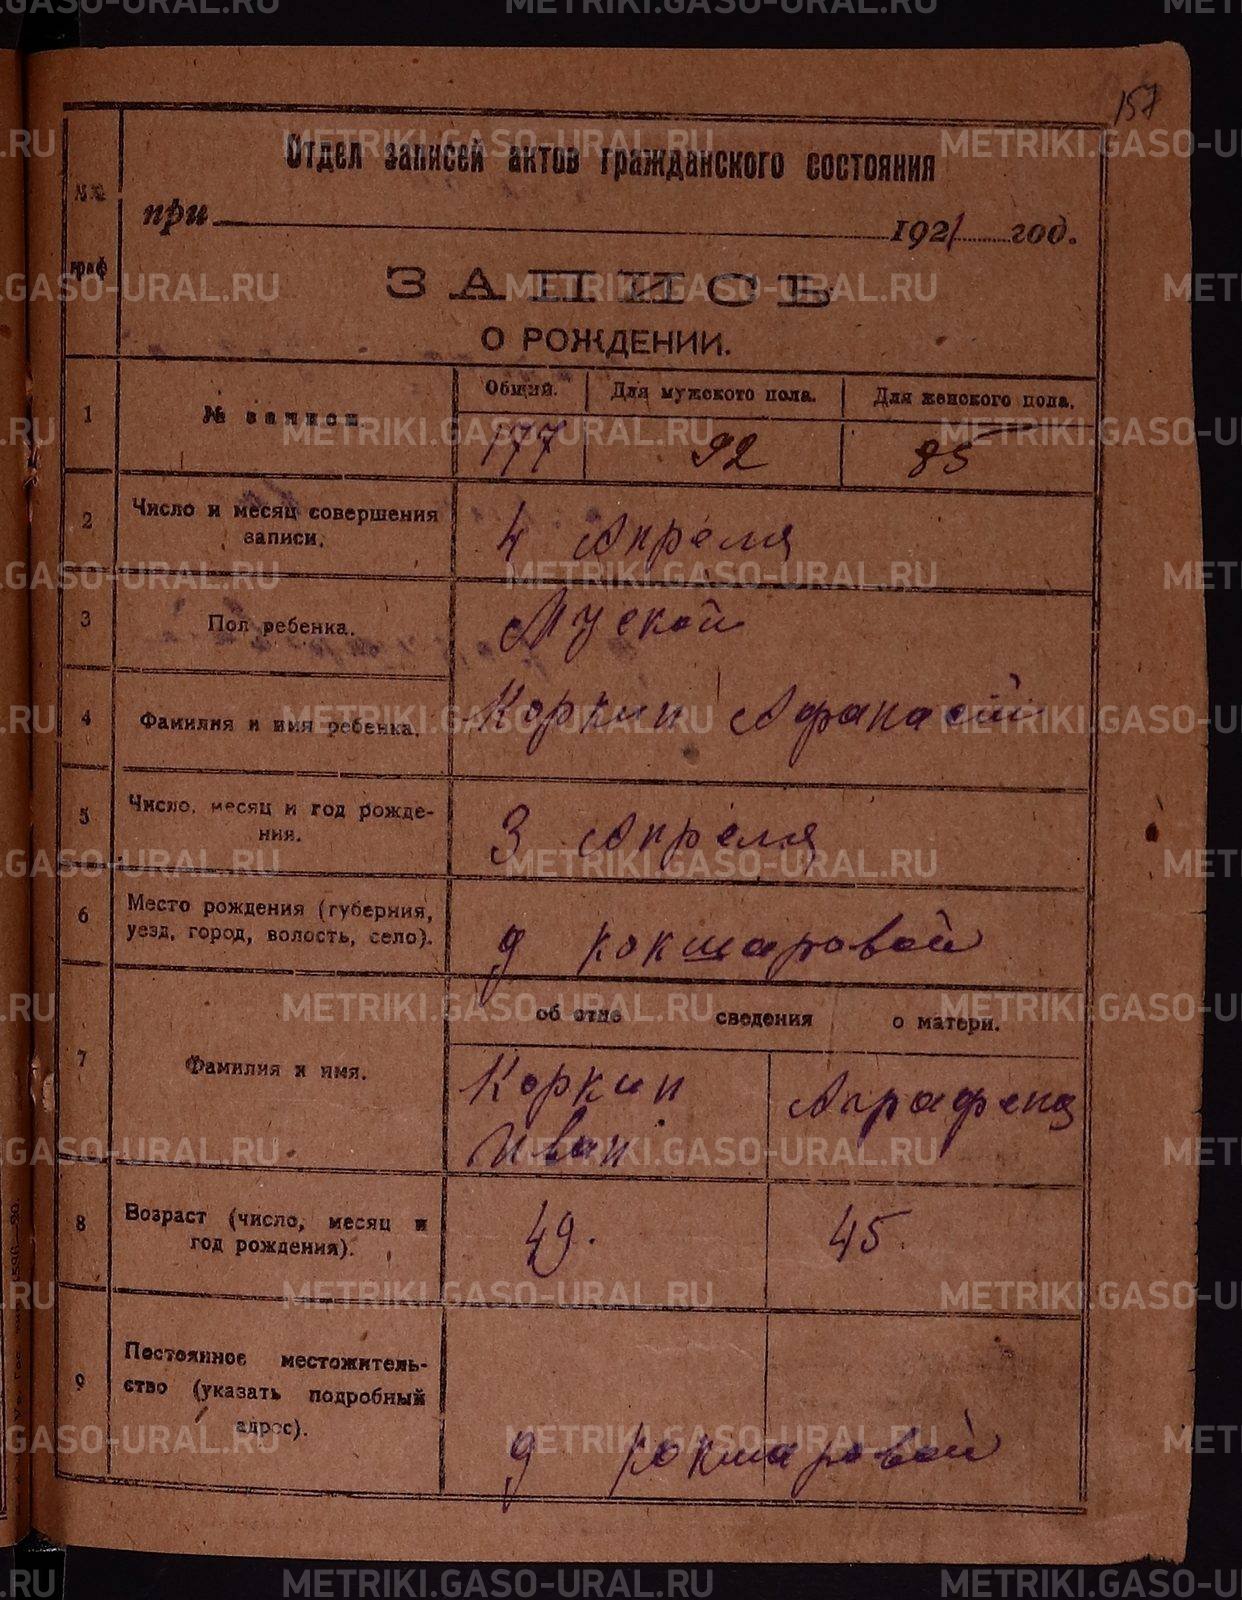 157
Отдел записей актов гражданского состояния
№№ граф
при 1921 год.
ЗАПИСЬ
О РОЖДЕНИИ.
Общий. Для мужского пола. Для женского пола.
1 № записи 177 92 85
2 Число и месяц совершения
записи. 4 Апреля
3 Пол ребенка. Муской
4 Фамилия и имя ребенка. Коркин Афанасий
5 Число, месяц и год рожде-
ния. 3 Апреля
6 Место рождения (губерния,
уезд, город, волость, село). д кокшаровой
об отце сведения о матери.
7 Фамилия и имя. Коркин Аграфена
Иван
8 Возраст (число, месяц и
год рождения). 49. 45.
9 Постоянное местожитель-
ство (указать подробный
адрес). д кокшаровой
METRIKI.GASO-URAL.RU